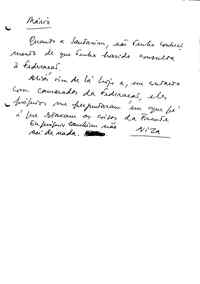 Mário
Quanto a Santarém, não tenho conheci
mento de que tenha havido consulta
à Federação.
Aliás vim de lá hoje e, em contacto
com camaradas da Federação, eles
próprios me perguntaram em que pé
é que estavam as coisas da Frente
Eu próprio também não
sei de nada.